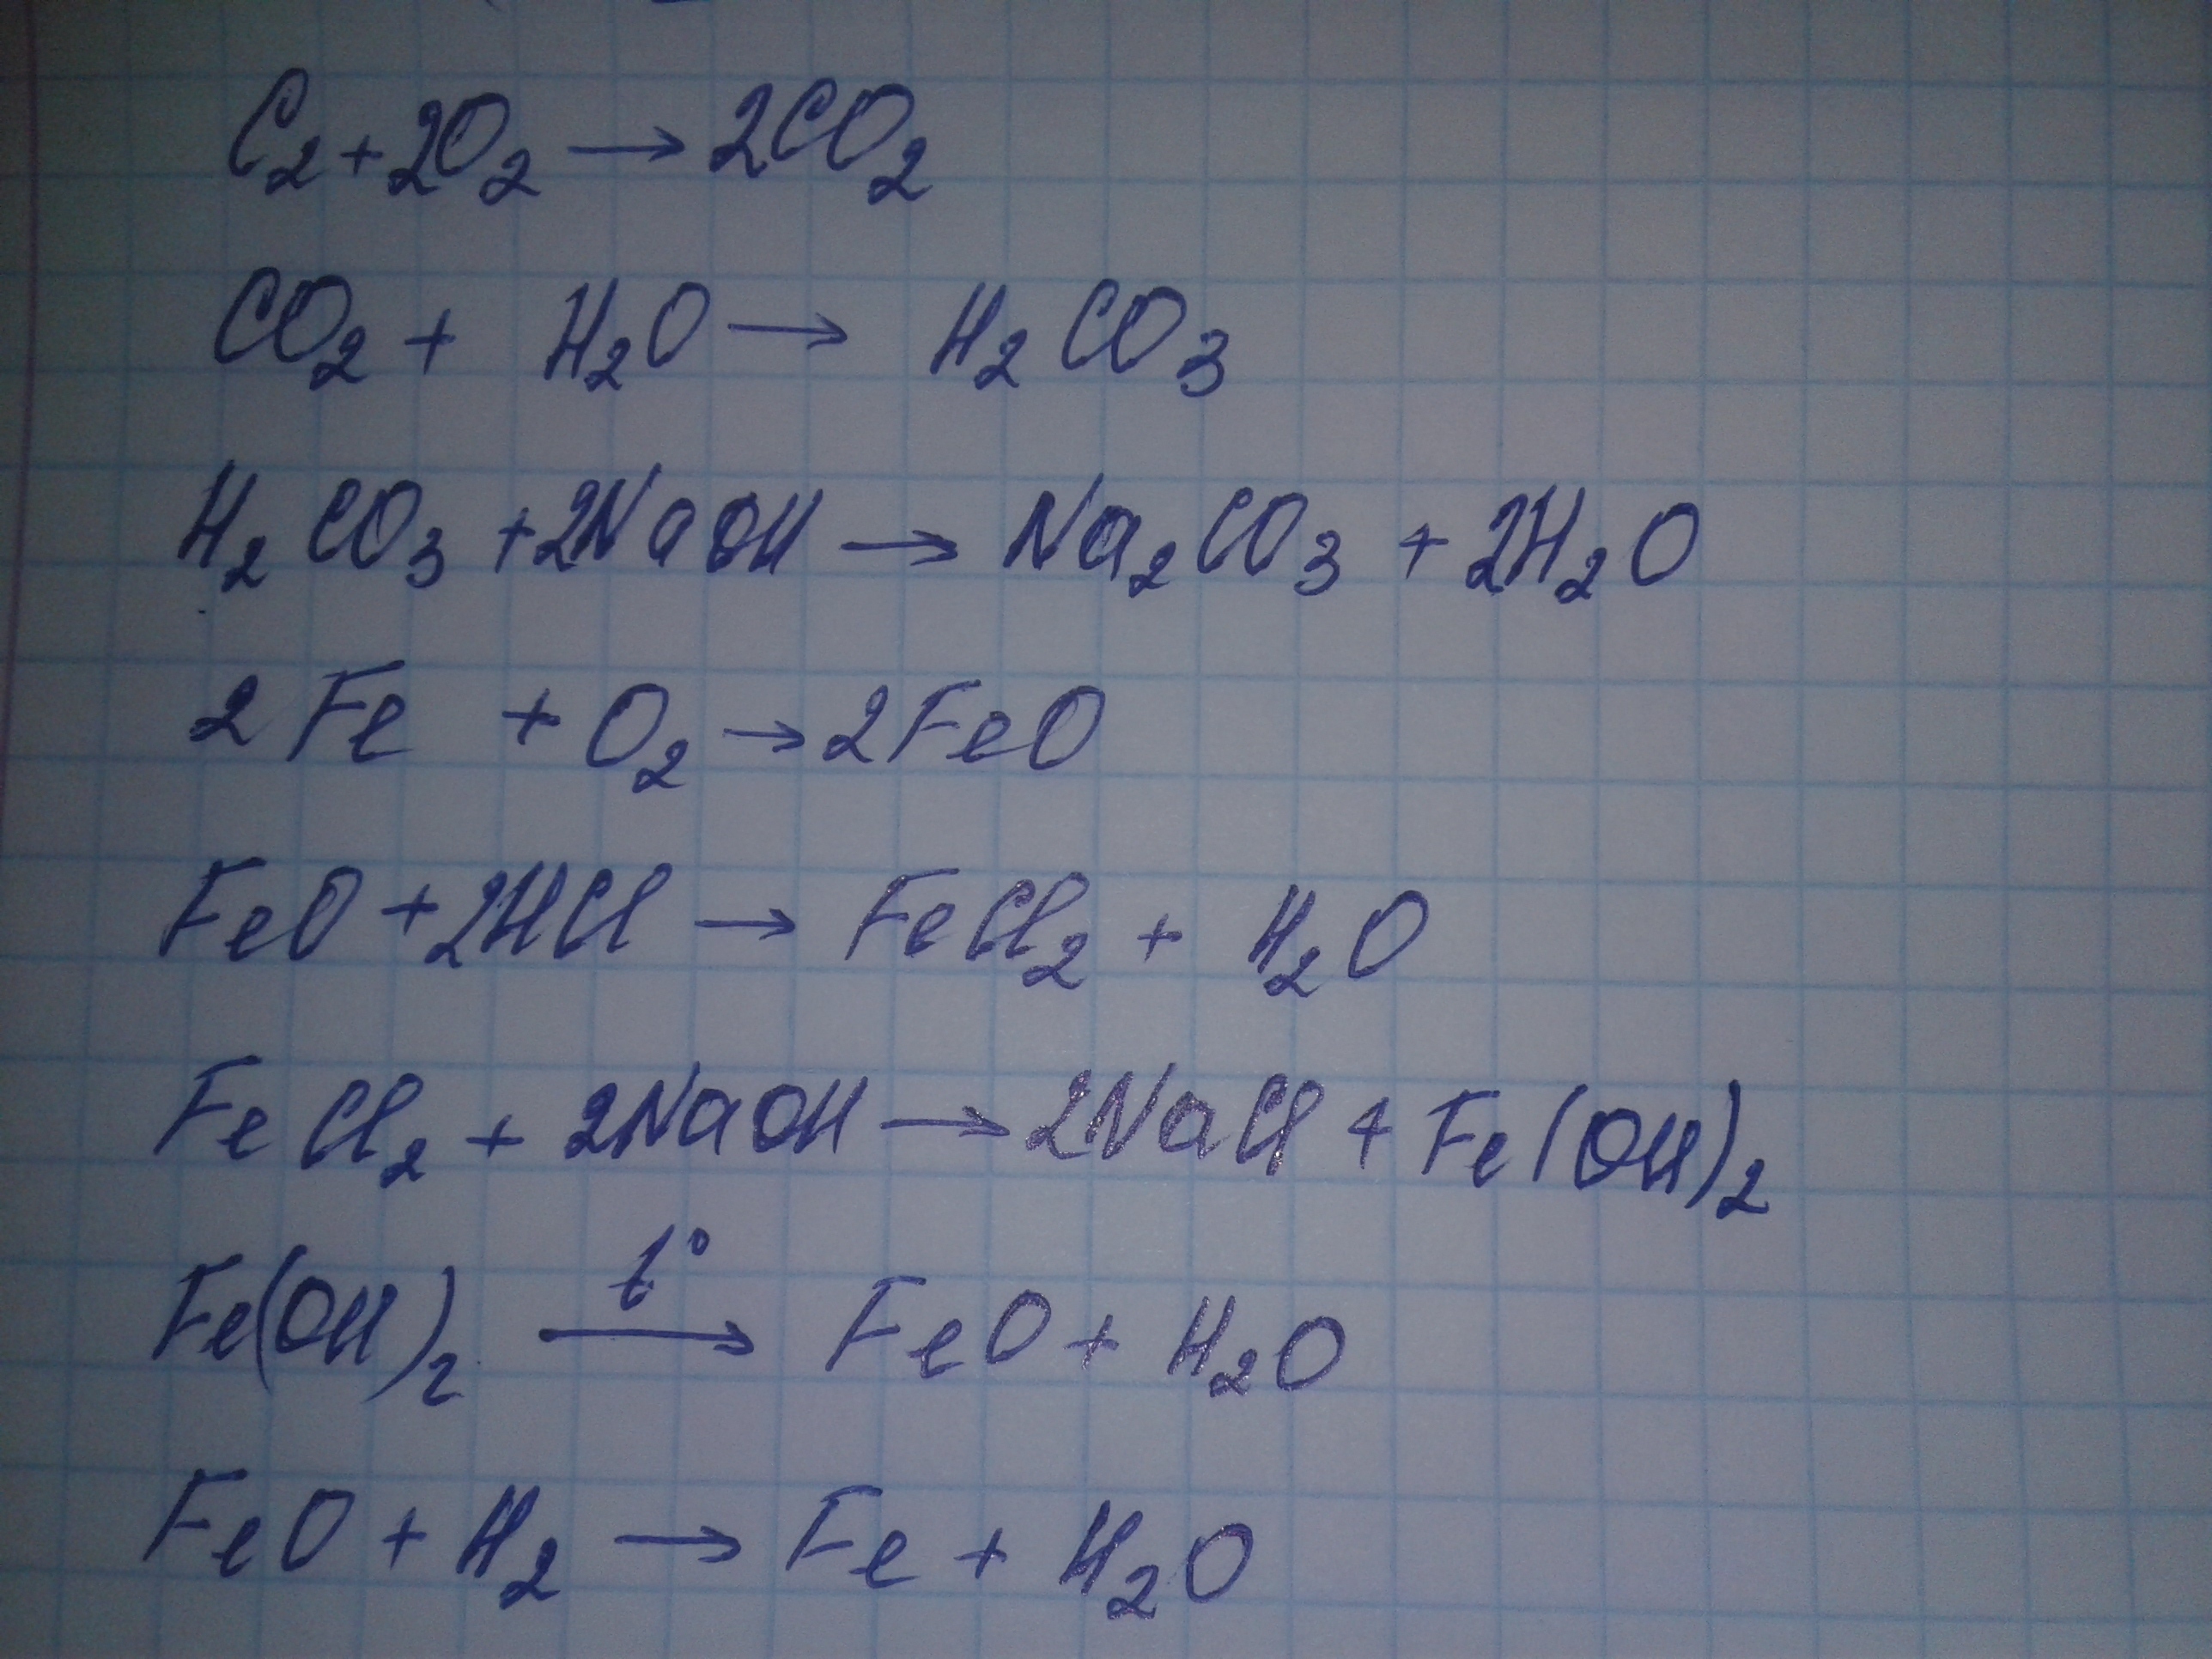 C₂ + 2O₂ → 2CO₂
CO₂ + H₂O → H₂CO₃
H₂CO₃ + 2NaOH → Na₂CO₃ + 2H₂O
2Fe + O₂ → 2FeO
FeO + 2HCl → FeCl₂ + H₂O
FeCl₂ + 2NaOH → 2NaCl + Fe(OH)₂
Fe(OH)₂ t° → FeO + H₂O
FeO + H₂ → Fe + H₂O